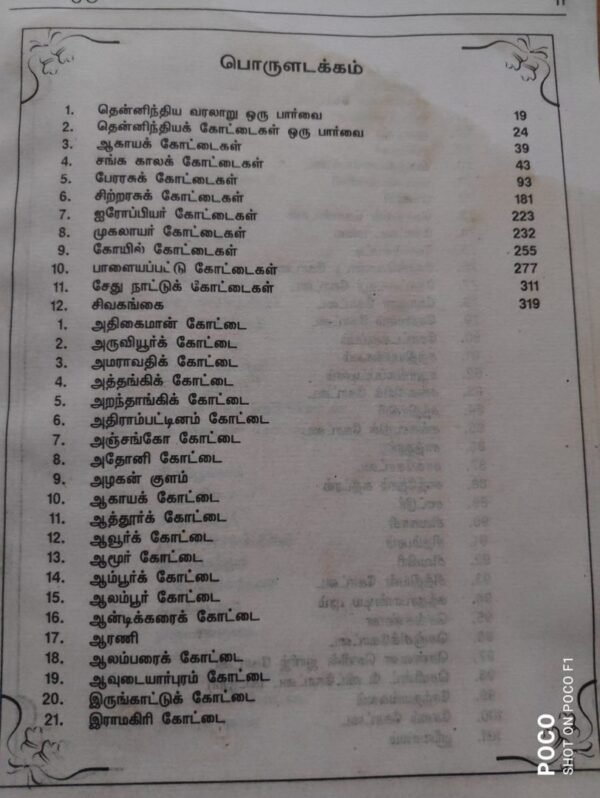 11
பொருளடக்கம்
1. தென்னிந்திய வரலாறு ஒரு பார்வை 19
2. தென்னிந்தியக் கோட்டைகள் ஒரு பார்வை 24
3. ஆகாயக் கோட்டைகள் 39
4. சங்க காலக் கோட்டைகள் 43
5. பேரரசுக் கோட்டைகள் 93
6. சிற்றரசுக் கோட்டைகள் 181
7. ஐரோப்பியர் கோட்டைகள் 223
8. முகலாயர் கோட்டைகள் 232
9. கோயில் கோட்டைகள் 255
10. பாளையப்பட்டு கோட்டைகள் 277
11. சேது நாட்டுக் கோட்டைகள் 311
12. சிவகங்கை 319
1. அதிகைமான் கோட்டை
2. அருவியூர்க் கோட்டை
3. அமராவதிக் கோட்டை
4. அத்தங்கிக் கோட்டை
5. அறந்தாங்கிக் கோட்டை
6. அதிராம்பட்டினம் கோட்டை
7. அஞ்சங்கோ கோட்டை
8. அதோனி கோட்டை
9. அழகன் குளம்
10. ஆகாயக் கோட்டை
11. ஆத்தூர்க் கோட்டை
12. ஆவூர்க் கோட்டை
13. ஆமூர் கோட்டை
14. ஆம்பூர்க் கோட்டை
15. ஆலம்பூர் கோட்டை
16. ஆன்டிக்கரைக் கோட்டை
17. ஆரணி
18. ஆலம்பரைக் கோட்டை
19. ஆவுடையார்புரம் கோட்டை
20. இருங்காட்டுக் கோட்டை
21. இராமகிரி கோட்டை
POCO
SHOT ON POCO F1